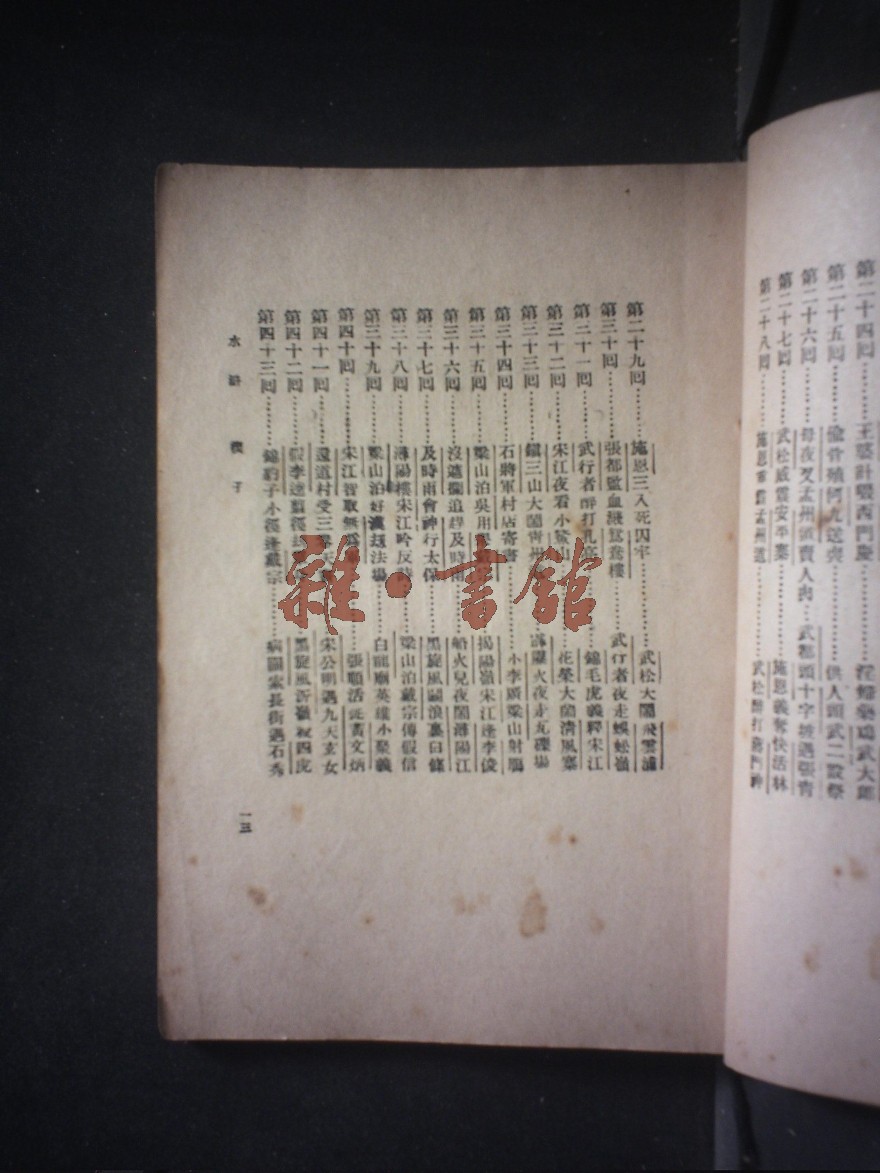 第二十四回………王婆計啜西門慶 淫婦藥鴆武大郎
第二十五回………偷骨殖何九送喪 供人頭武二設祭
第二十六回………母夜叉孟州道賣人肉…武都頭十字坡遇張青
第二十七回………武松威震安平寨 施恩義奪快活林
第二十八回………施恩重霸孟州道………武松醉打蔣門神
第二十九回………施恩三入死囚牢………武松大鬧飛雲浦
第三十回………張都監血濺鴛鴦樓………武行者夜走蜈蚣嶺
第三十一回………武行者醉打孔亮………錦毛虎義釋宋江
第三十二回………宋江夜看小鰲山………花榮大鬧清風寨
第三十三回………鎮三山大鬧靑州 霹靂火夜走瓦礫場
第三十四回………石將軍村店寄書………小李廣梁山射鴈
第三十五回………梁山泊吳用 揭陽嶺宋江逢李俊
第三十六回………沒遮攔追趕及時雨 船火兒夜鬧潯陽江
第三十七回………及時雨會神行太保 黑旋風鬬浪裏白條
第三十八回………潯陽樓宋江吟反詩 梁山泊戴宗傳假信
第三十九回………梁山泊好漢劫法場 白龍廟英雄小聚義
第四十回………宋江智取無爲軍 張順活捉黃文炳
第四十一回………還道村受三 天 宋公明遇九天玄女
第四十二回………假李逵翦徑劫 黑旋風沂嶺殺四虎
第四十三回………錦豹子小徑逢戴宗………病關索長街遇石秀
水滸 楔子
一三
雜·書館